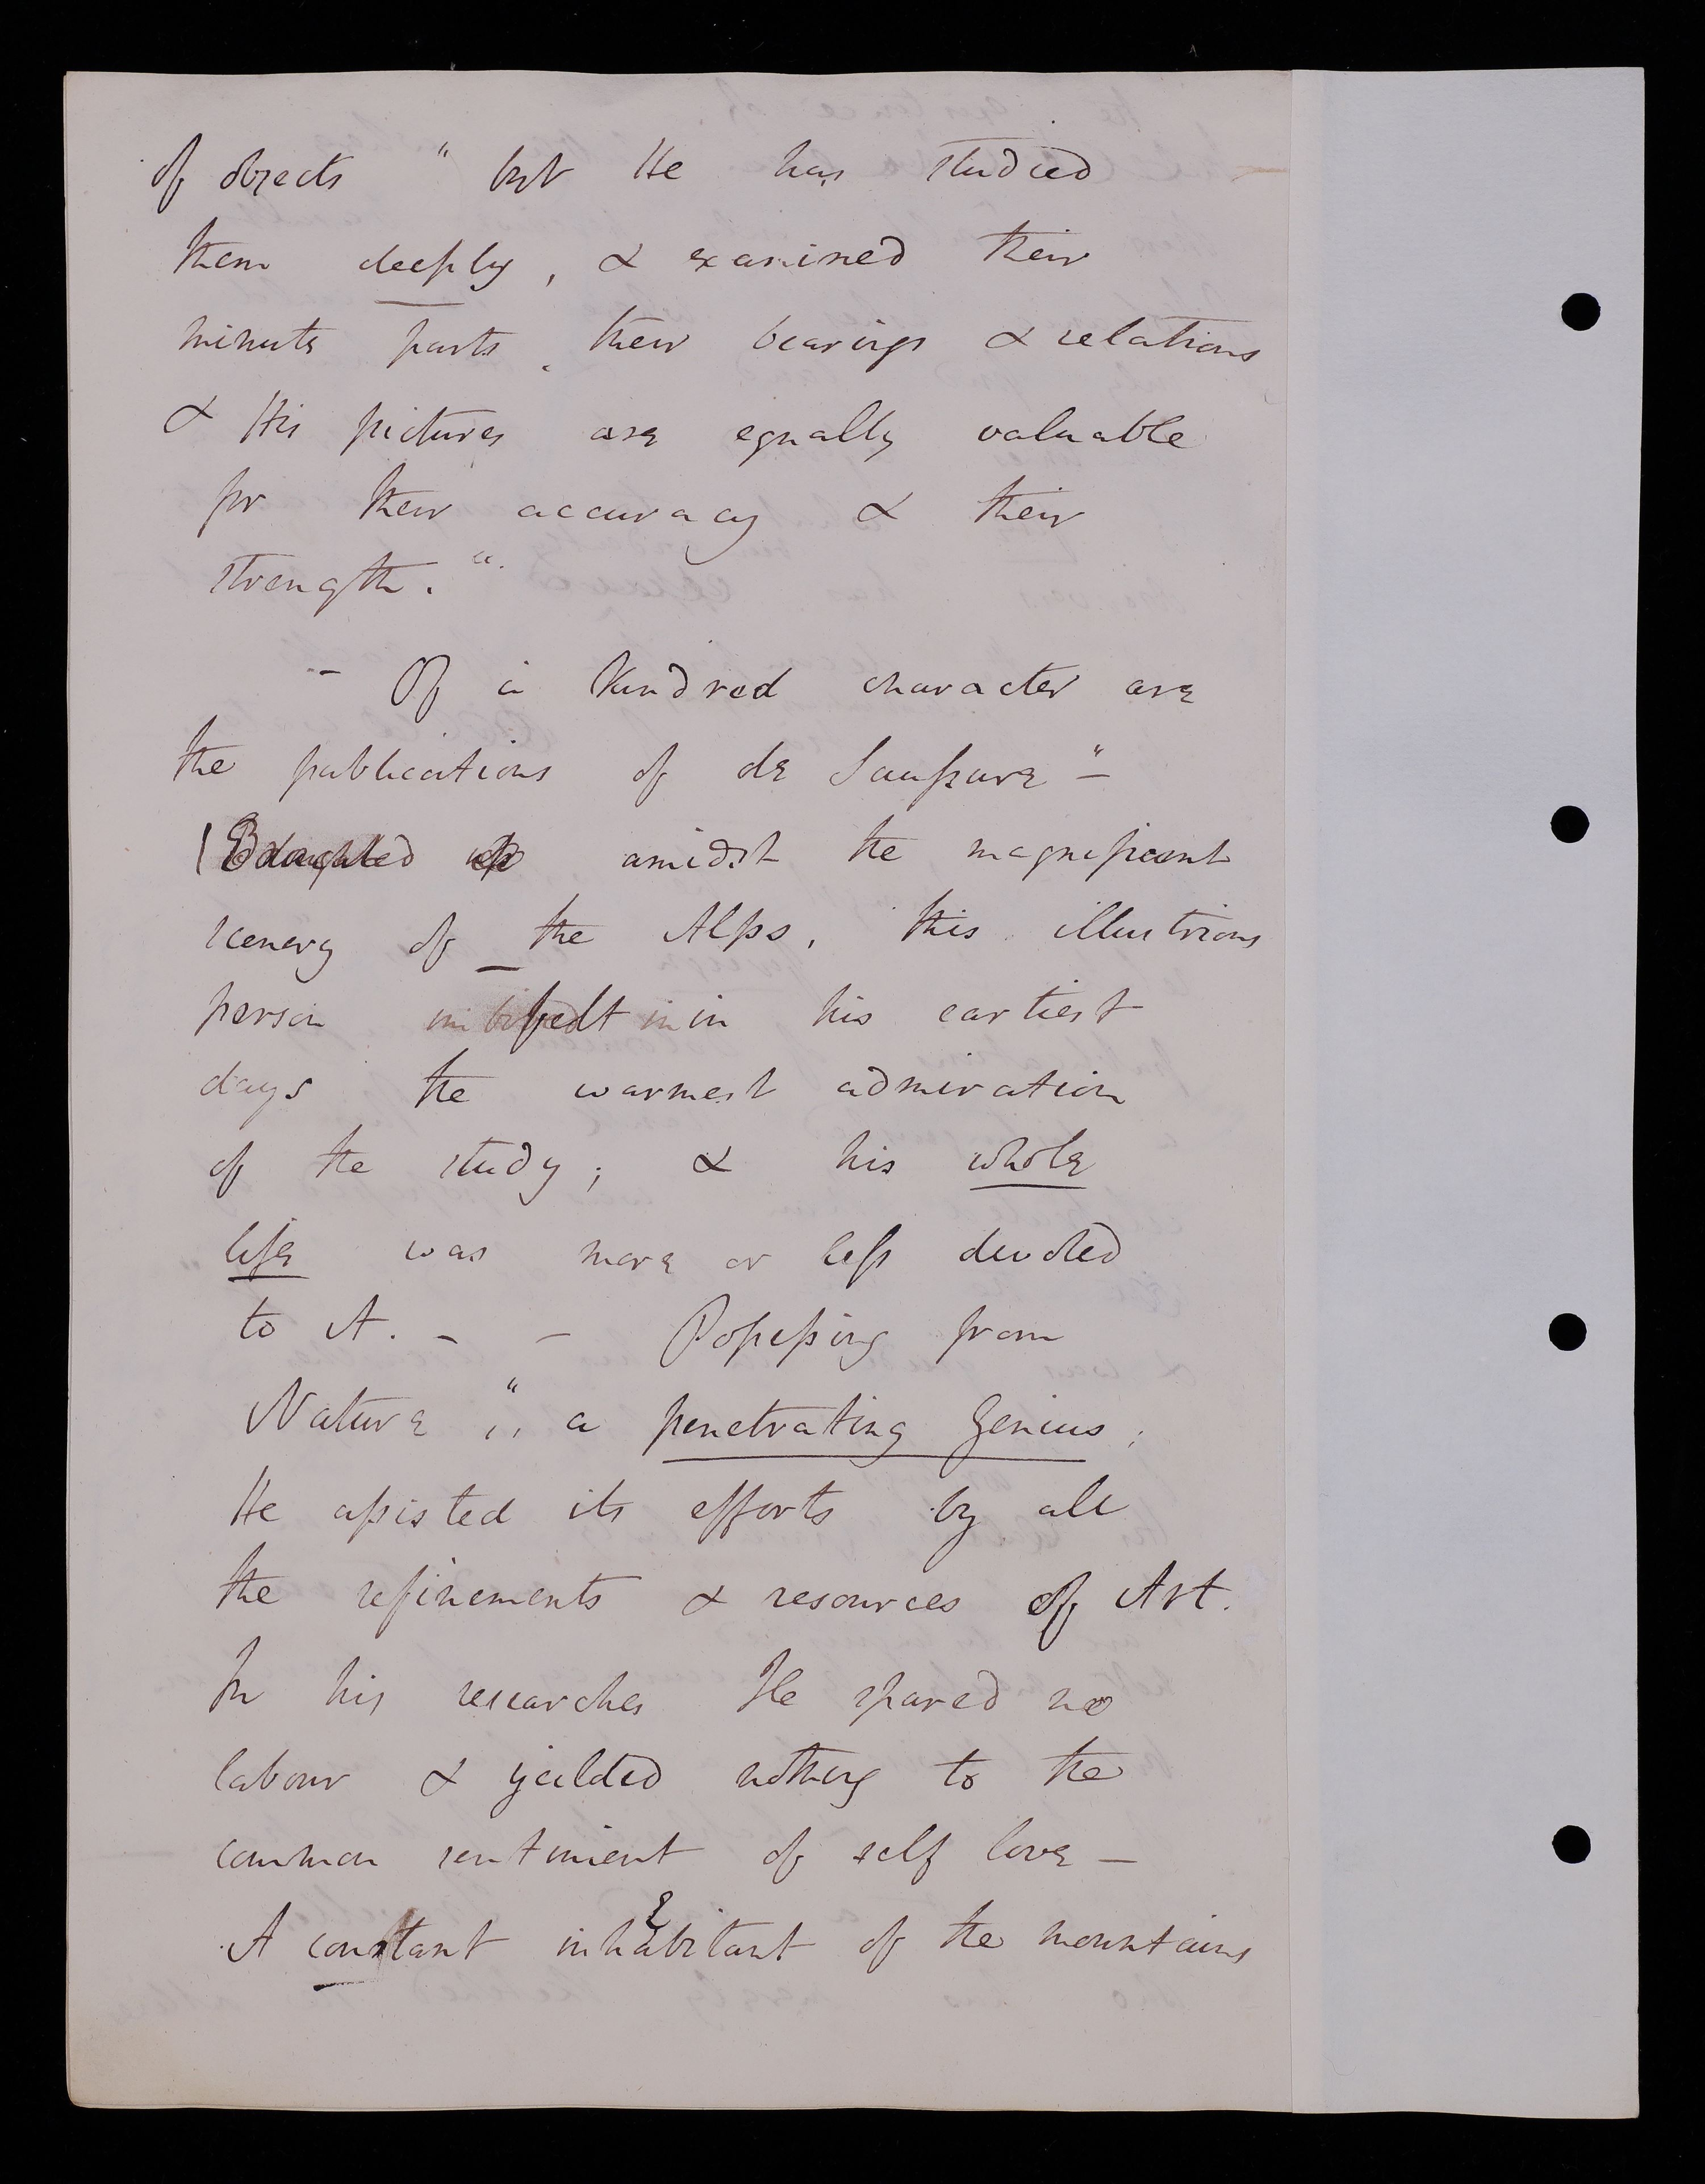 of objects " but He has studied
them deeply, & examined their
minute parts, their bearings & relations
& His pictures are equally valuable
for their accuracy & their
strength."
- Of a kindred character are
the publications of de Saussure " -
amidst the magnificent
scenery of the Alps, this illustrious
person imbibed felt in in his earliest
days the warmest admiration
of the study; & his whole
life was more or less devoted
to it. - - Possessing from
Nature ,, " a penetrating genius;
He assisted its efforts by all
the refinements & resources of Art.
In his researches He spared no
labour & yielded nothing to the
common sentiment of self love -
A constant inhabitant of the mountains